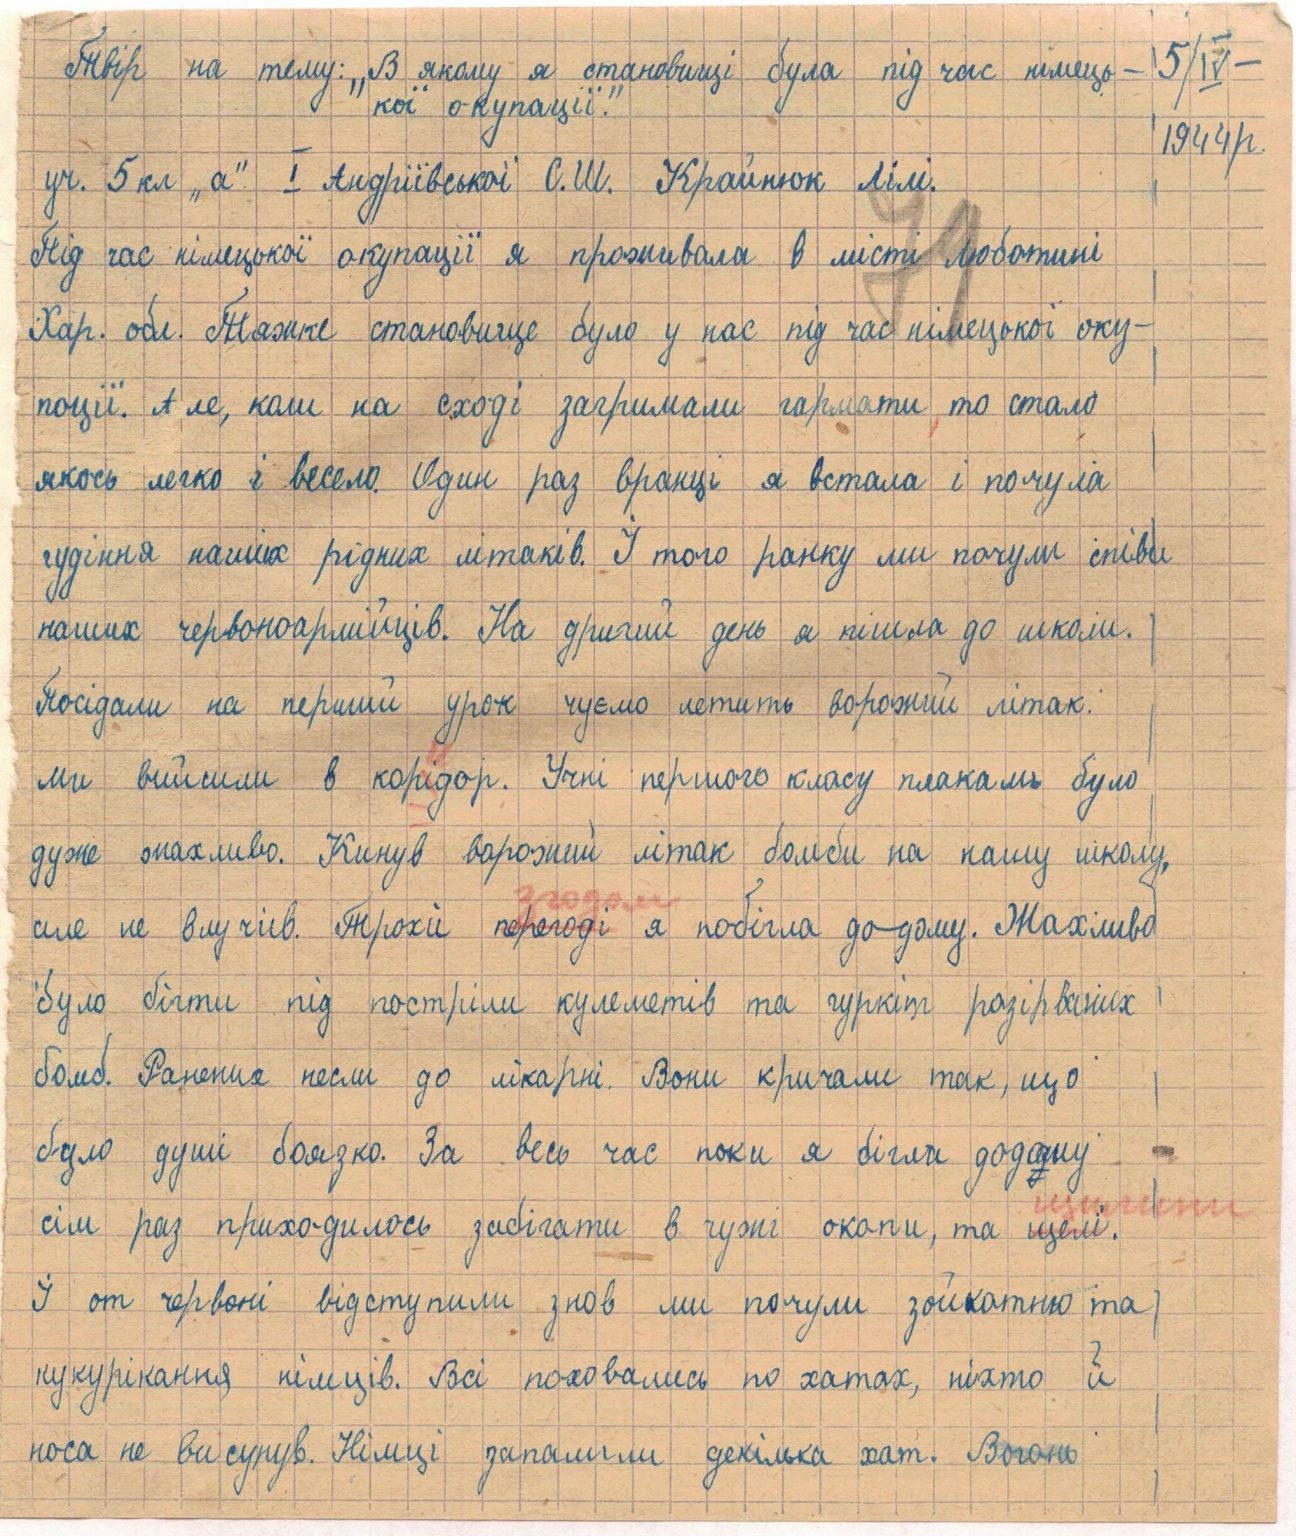 Твір на тему: „В якому я становищі була під час німець-
кої окупації."
5/IV-
1944р.
уч. 5 кл „а" I Андріївської С.Ш. Крайнюк Лілі.
Під час німецької окупації я проживала в місті Люботині
Хар. обл. Тяжке становище було у нас під час німецької оку-
пації. Але, коли на сході загримали гармати, то стало
якось легко і весело. Один раз вранці я встала і почула
гудіння наших рідних літаків. Й того ранку ми почули співи
наших червоноармійців. На другий день я пішла до школи.
Посідали на перший урок чуємо летить ворожий літак.
ми вийшли в корідор. Учні першого класу плакали було
дуже жахливо. Кинув ворожий літак бомби на нашу школу,
згодом
але не влучив. Трохи перегоді я побігла до-дому. Жахливо
було бігти під постріли кулеметів та гуркіт розірваних
бомб. Ранених несли до лікарні. Вони кричали так, що
було душі боязко. За весь час поки я бігла додому
щилини
сім раз приходилось забігати в чужі окопи, та щелі.
Й от червоні відступили знов ми почули зойкотню та
кукурікання німців. Всі поховались по хатах, ніхто й
носа не висунув. Німці запалили декілька хат. Вогонь